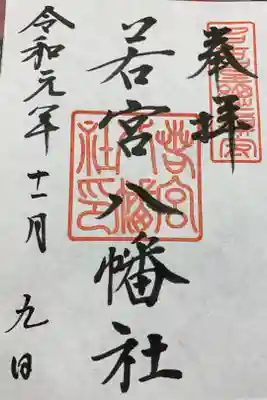 奉拝
若宮八幡社
令和元年十一月九日
若宮八幡社印